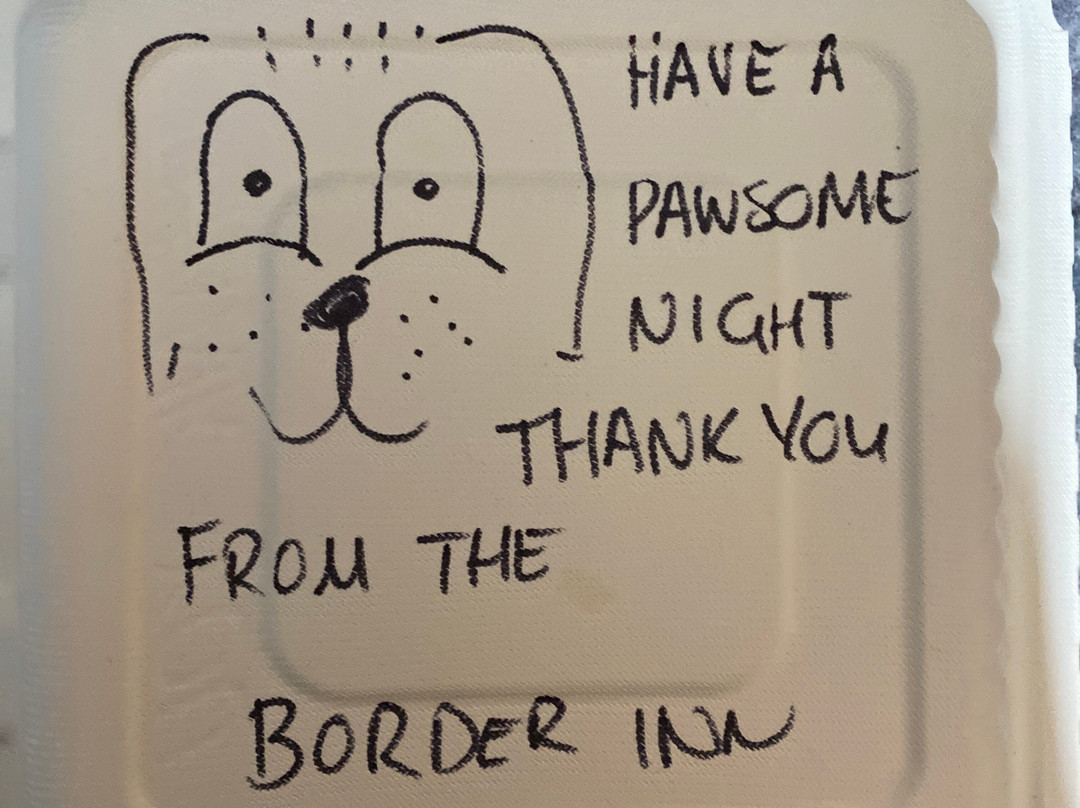 HAVE A
PAWSOME
NIGHT
THANK YOU
FROM THE
BORDER INN